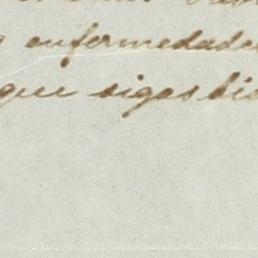 enfermedades
que sigas bie